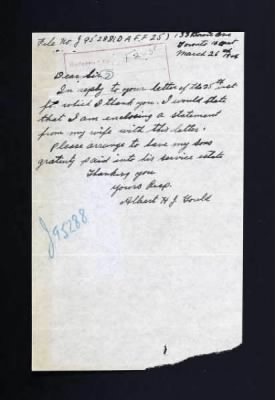 File No. J 95288 (D A F.F 25)
Toronto
March 26
Dear Sir
In reply to your letter of the 25th inst
for which I thank you. I would state
that I am enclosing a statement
from my wife with this letter.
Please arrange to have my sons
gratuity paid into his service estate
Thanking you
Yours Resp.
Albert H J Gould
J95288